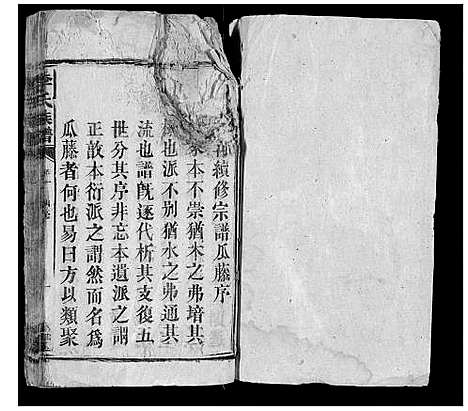 續修宗譜瓜藤序
本不崇猶木之弗培其
也派不別猶水之弗通其
流也譜旣逐代析其支復五
世分其序非忘本遺派之謂
正故本衍派之謂然而名爲
瓜藤者何也易曰方以類聚
氏族譜